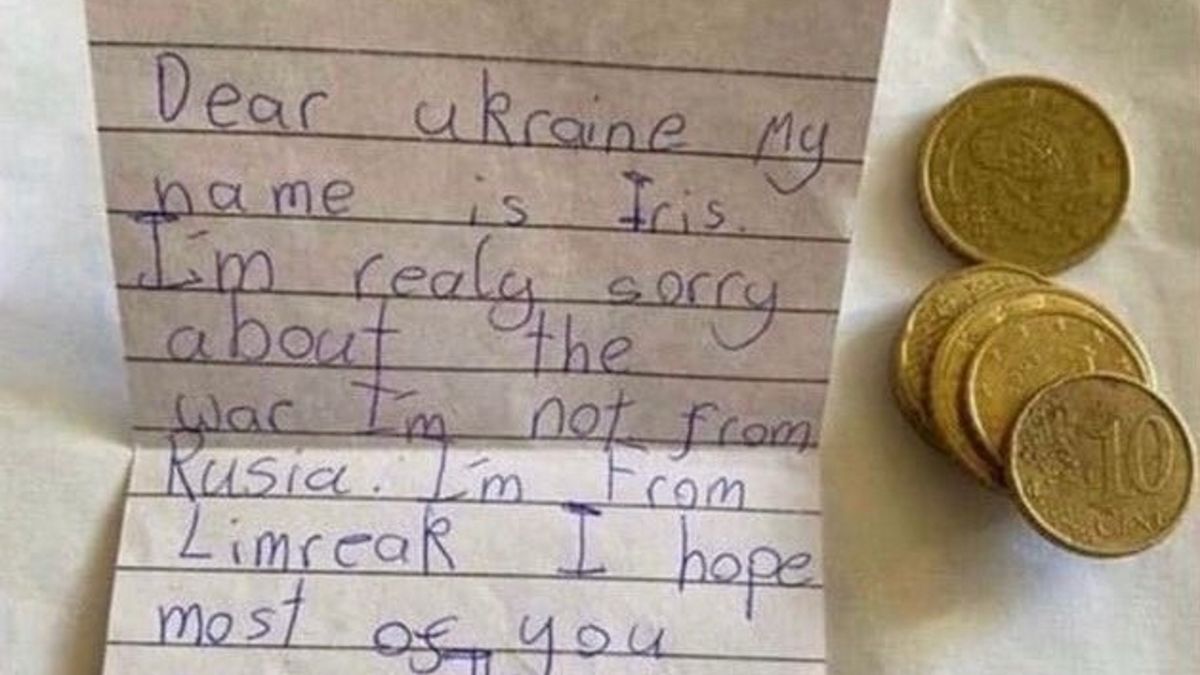 Dear ukraine My
name is Iris.
I'm realy sorry
about the
war I'm not from
Rusia. I'm From
Limreak I hope
most of you
10
CENT